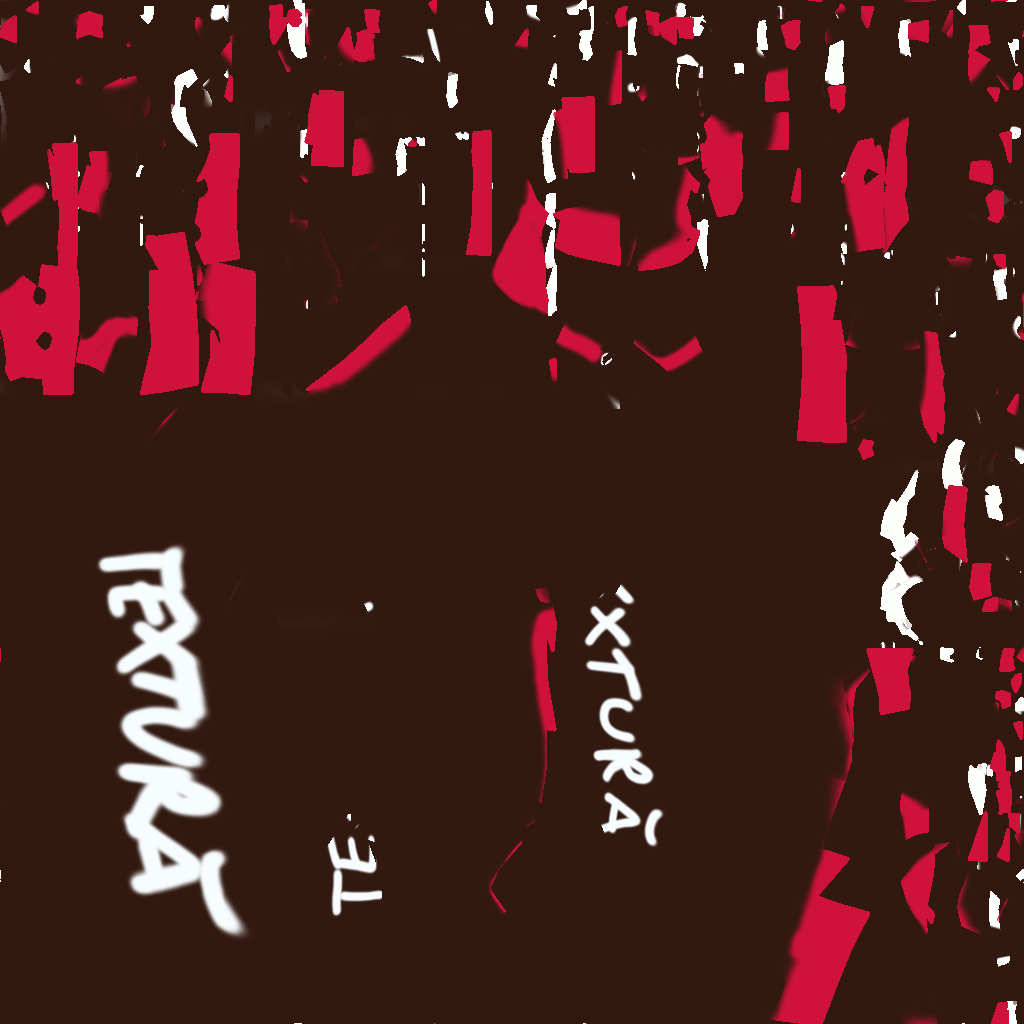 TEXTURĂ
TE
XTURĂ